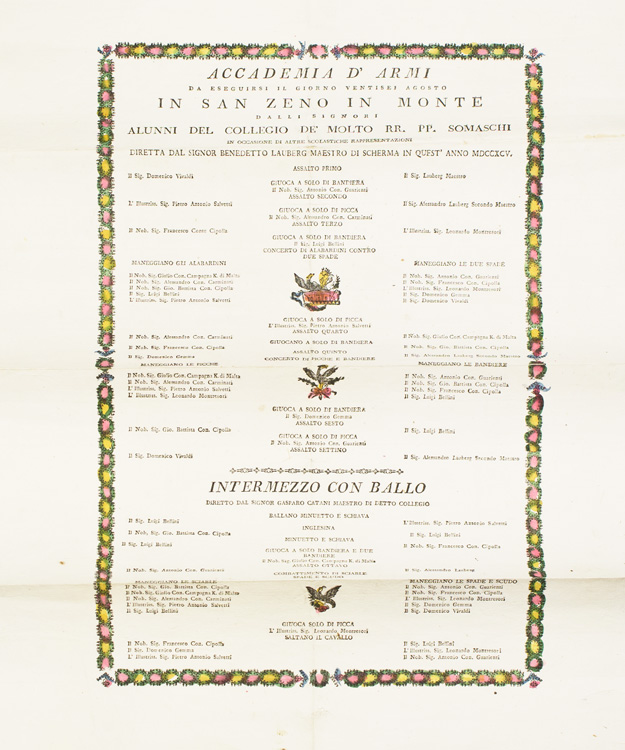 ACCADEMIA D' ARMI
DA ESEGUIRSI IL GIORNO VENTISEI AGOSTO
IN SAN ZENO IN MONTE
DALLI SIGNORI
ALUNNI DEL COLLEGIO DE' MOLTO RR. PP. SOMASCHI
IN OCCASIONE DI ALTRE SCOLASTICHE RAPPRESENTAZIONI
DIRETTA DAL SIGNOR BENEDETTO LAUBERG MAESTRO DI SCHERMA IN QUEST' ANNO MDCCXCV.
ASSALTO PRIMO
Il Sig. Domenico Vivaldi
Il Sig. Lauberg Maestro
GIUOCA A SOLO DI BANDIERA
Il Nob. Sig. Antonio Con. Guarienti
ASSALTO SECONDO
L' Illustriss. Sig. Pietro Antonio Salvetti
Il Sig. Alessandro Lauberg Secondo Maestro
GIUOCA A SOLO DI PICCA
Il Nob. Sig. Alessandro Con. Carminati
ASSALTO TERZO
Il Nob. Sig. Francesco Conte Cipolla
L' Illustriss. Sig. Leonardo Montresori
GIUOCA A SOLO DI BANDIERA
Il Sig. Luigi Bellini
CONCERTO DI ALABARDINI CONTRO
DUE SPADE
MANEGGIANO GLI ALABARDINI
MANEGGIANO LE DUE SPADE
Il Nob. Sig. Giulio Con. Campagna K. di Malta
Il Nob. Sig. Alessandro Con. Carminati
Il Nob. Sig. Gio. Battista Con. Cipolla
Il Sig. Luigi Bellini
L' Illustriss. Sig. Pietro Antonio Salvetti
Il Nob. Sig. Antonio Con. Guarienti
Il Nob. Sig. Francesco Con. Cipolla
L' Illustriss. Sig. Leonardo Montresori
Il Sig. Domenico Gemma
Il Sig. Domenico Vivaldi
GIUOCA A SOLO DI PICCA
L' Illustriss. Sig. Pietro Antonio Salvetti
ASSALTO QUARTO
Il Nob. Sig. Alessandro Con. Carminati
Il Nob. Sig. Giulio Con. Campagna K. di Malta
GIUOCANO A SOLO DI BANDIERA
Il Nob. Sig. Francesco Con. Cipolla
Il Nob. Sig. Gio. Battista Con. Cipolla
ASSALTO QUINTO
Il Sig. Domenico Gemma
Il Sig. Alessandro Lauberg Secondo Maestro
CONCERTO DI PICCHE E BANDIERE
MANEGGIANO LE PICCHE
MANEGGIANO LE BANDIERE
Il Nob. Sig. Giulio Con. Campagna K. di Malta
Il Nob. Sig. Alessandro Con. Carminati
L' Illustriss. Sig. Pietro Antonio Salvetti
L' Illustriss. Sig. Leonardo Montresori
Il Nob. Sig. Antonio Con. Guarienti
Il Nob. Sig. Gio. Battista Con. Cipolla
Il Nob. Sig. Francesco Con. Cipolla
Il Sig. Luigi Bellini
GIUOCA A SOLO DI BANDIERA
Il Sig. Domenico Gemma
ASSALTO SESTO
Il Nob. Sig. Gio. Battista Con. Cipolla
Il Sig. Luigi Bellini
GIUOCA A SOLO DI PICCA
Il Nob. Sig. Antonio Con. Guarienti
ASSALTO SETTIMO
Il Sig. Domenico Vivaldi
Il Sig. Alessandro Lauberg Secondo Maestro
INTERMEZZO CON BALLO
DIRETTO DAL SIGNOR GASPARO CATANI MAESTRO DI DETTO COLLEGIO
BALLANO MINUETTO E SCHIAVA
Il Sig. Luigi Bellini
L' Illustriss. Sig. Pietro Antonio Salvetti
INGLESINA
Il Nob. Sig. Gio. Battista Con. Cipolla
Il Sig. Luigi Bellini
MINUETTO E SCHIAVA
Il Sig. Luigi Bellini
Il Nob. Sig. Francesco Con. Cipolla
GIUOCA A SOLO BANDIERA E DUE
BANDIERE
Il Nob. Sig. Giulio Con. Campagna K. di Malta
ASSALTO OTTAVO
Il Nob. Sig. Antonio Con. Guarienti
Il Sig. Alessandro Lauberg
COMBATTIMENTO DI SCIABLE
SPADE E SCUDO
MANEGGIANO LE SCIABLE
MANEGGIANO LE SPADE E SCUDO
Il Nob. Sig. Gio. Battista Con. Cipolla
Il Nob. Sig. Giulio Con. Campagna K. di Malta
Il Nob. Sig. Alessandro Con. Carminati
L' Illustriss. Sig. Pietro Antonio Salvetti
Il Sig. Luigi Bellini
Il Nob. Sig. Antonio Con. Guarienti
Il Nob. Sig. Francesco Con. Cipolla
L' Illustriss. Sig. Leonardo Montresori
Il Sig. Domenico Gemma
Il Sig. Domenico Vivaldi
GIUOCA SOLO DI PICCA
L' Illustriss. Sig. Leonardo Montresori
SALTANO IL CAVALLO
Il Nob. Sig. Francesco Con. Cipolla
Il Sig. Domenico Gemma
L' Illustriss. Sig. Pietro Antonio Salvetti
Il Sig. Luigi Bellini
L' Illustriss. Sig. Leonardo Montresori
Il Nob. Sig. Antonio Con. Guarienti